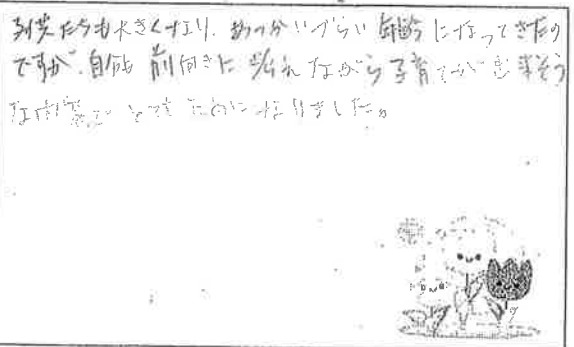 子供たちも大きくなり、あつかいづらい年齢になってきたの
ですが、自分も前向きに　ながら子育てが出来そう
な内容で とてもためになりました。